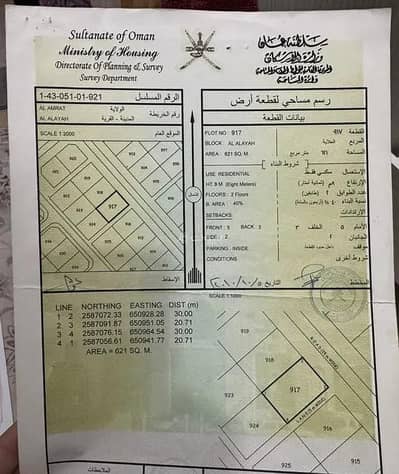 Sultanate of Oman
Ministry of Housing
Directorate Of Planning & Survey
Survey Department
سلطنة عمان
وزارة الإسكان
1-43-051-01-921
الرقم المسلسل
رسم مساحي لقطعة أرض
بيانات القطعة
AL AMRAT
الولاية
رقم الخريطة
AL ALAYAH
المدينة - القرية
SCALE 1:2000
الموقع العام
917
PLOT NO: 917
٩١٧
القطعة
BLOCK AL ALAYAH
العلاية
المربع
AREA: 621 SQ. M.
٦٢١ متر مربع
المساحة
شروط البناء
USE: RESIDENTIAL
سكني فقط
الاستعمال
HT: 8 M (Eight Meters)
الإرتفاع
FLOORS: 2 Floors
عدد الطوابق
B. AREA: 40%
نسبة البناء
SETBACKS:
الإرتدادات
FRONT: 5 BACK: 3
الأمام ٥ الخلف ٣
SIDE: 2
الجانبان ٢
PARKING: INSIDE
موقف
CONDITIONS
شروط أخرى
الشمال
الإسقاط
التاريخ
المخطط
SCALE 1:1000
LINE NORTHING EASTING DIST (m)
1 2 2587072.33 650928.28 30.00
2 3 2587091.87 650951.05 20.71
3 4 2587076.15 650964.54 30.00
4 1 2587056.61 650941.77 20.71
AREA = 621 SQ. M.
918
916
917
923
924
925
915
الملاحظات